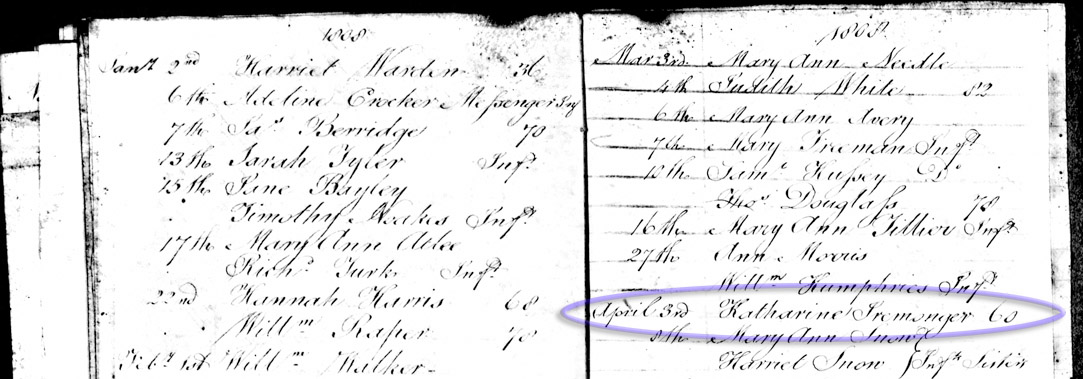 1808
Jany 2nd Harriet Warden 36
6th Adeline Crocker Messenger
7th Jas Berridge 70
13th Sarah Tyler Inft
15th Jane Bayley
Timothy Noakes Inft
17th Mary Ann Atlee
Richd Turk Inft
22nd Hannah Harris 68
Willm Raper 78
Feby 1st Willm Walker
1808
Mar 3rd Mary Ann Needle
4th Judith White 82
6th Mary Ann Avery
7th Mary Freeman Inft
10th Saml Hussey Do
Thos Douglass 78
16th Mary Ann Tillier Inft
27th Ann Morris
Willm Humphries Inft
April 3rd Katharine Iremonger 60
8th Mary Ann Snow
Harriet Snow Infts Sisters